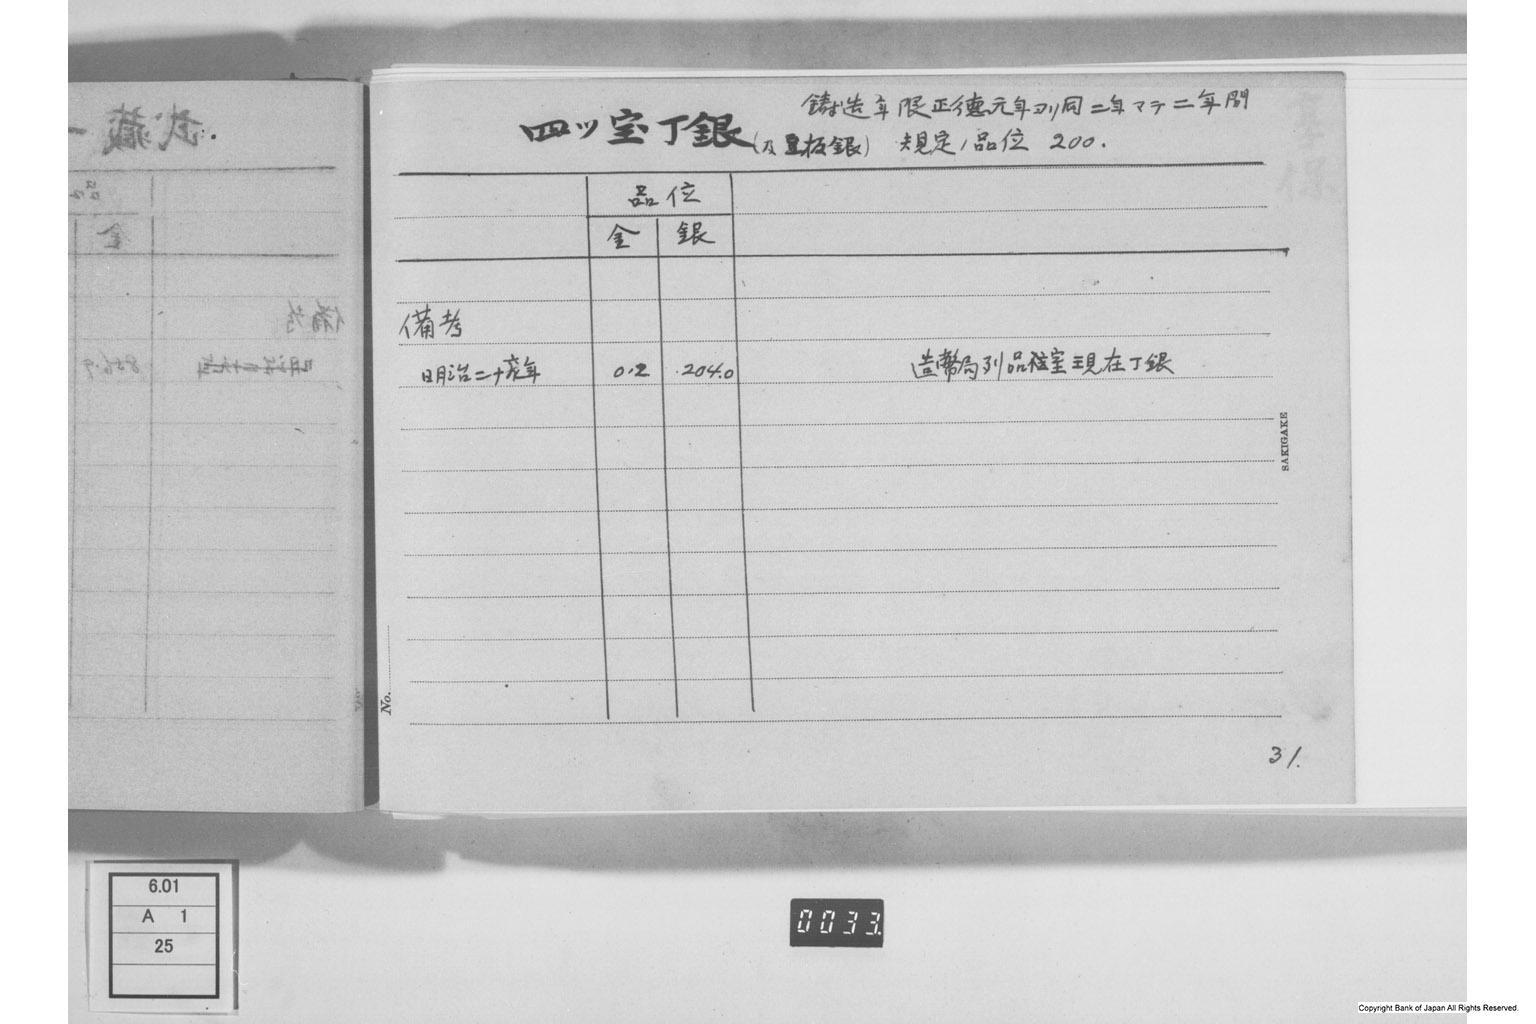 四ツ宝丁銀(及豆板銀)
鋳造年限正徳元年ヨリ同二年マデ二年間
規定ノ品位 200.
品位
金 銀
備考
明治二十 年 0.2 204.0 造幣局列品室現在丁銀
SAKIGAKE
No.
31.
武蔵一
金
備考
856.9
6.01
A 1
25
0033
Copyright Bank of Japan All Rights Reserved.